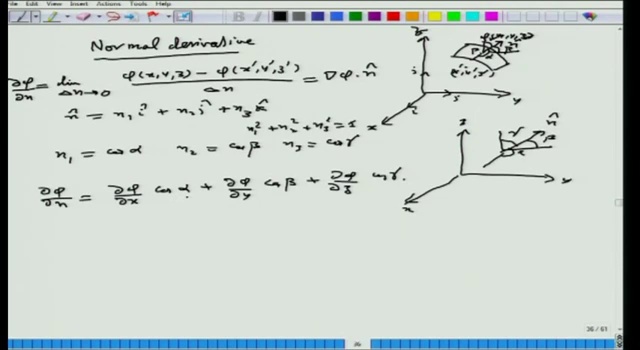 File Edit View Insert Actions Tools Help
Normal derivative
∂φ/∂n = lim Δn→0 (φ(x,y,z) − φ(x',y',z'))/Δn = ∇φ·n̂
n̂ = n₁ î + n₂ ĵ + n₃ k̂
n₁² + n₂² + n₃² = 1
n₁ = cosα n₂ = cosβ n₃ = cosγ
∂φ/∂n = ∂φ/∂x cosα + ∂φ/∂y cosβ + ∂φ/∂z cosγ.
z
(x',y',z')
y
x
z
n̂
γ
β
α
y
x
36 / 61
36